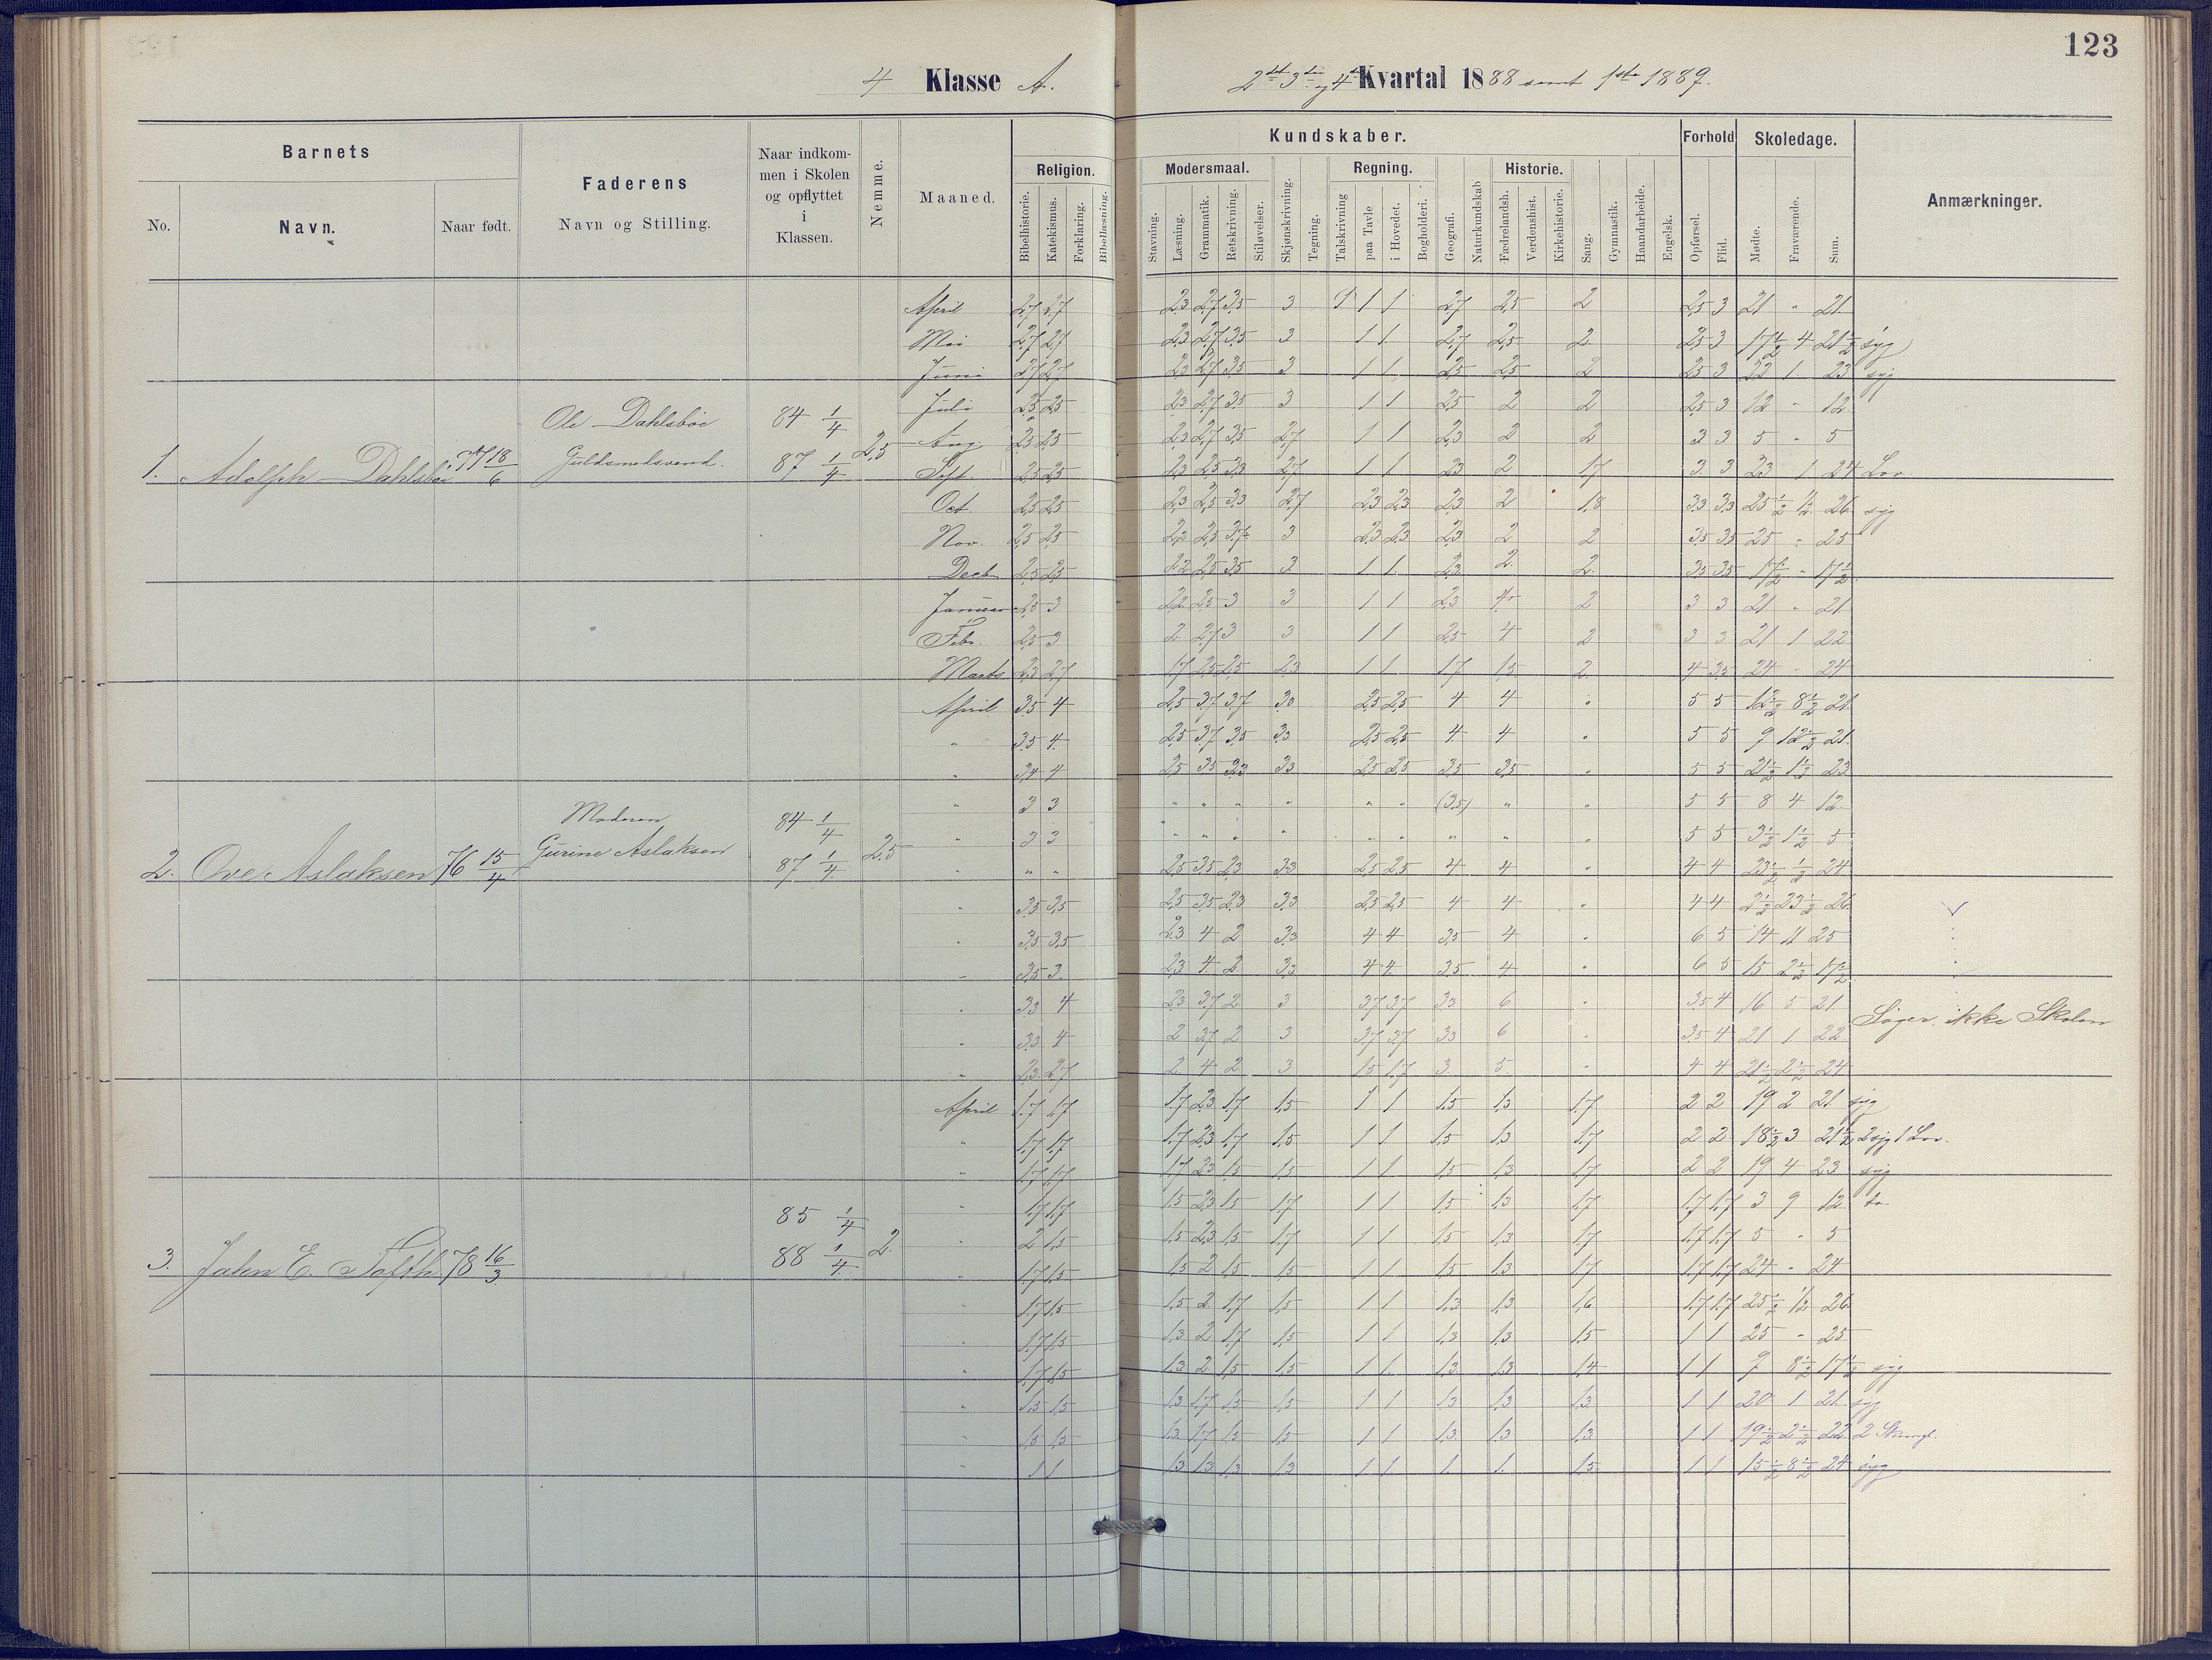 123
4 Klasse A.
2det 3die og 4de Kvartal 1888 samt 1ste 1889.
Barnets
No.
Navn.
Naar født.
Faderens
Navn og Stilling.
Naar indkom-
men i Skolen
og opflyttet
i
Klassen.
Nemme.
Maaned.
Kundskaber.
Religion.
Bibelhistorie.
Katekismus.
Forklaring.
Bibellæsning.
Modersmaal.
Stavning.
Læsning.
Grammatik.
Retskrivning.
Stiløvelser.
Skjønskrivning.
Tegning.
Regning.
Talskrivning
paa Tavle
i Hovedet.
Bogholderi.
Geografi.
Naturkundskab
Historie.
Fædrelandsh.
Verdenshist.
Kirkehistorie.
Sang.
Gymnastik.
Haandarbeide.
Engelsk.
Forhold
Opførsel.
Flid.
Skoledage.
Mødte.
Fraværende.
Sum.
Anmærkninger.
1. Adolph Dahlsbøe 77 18/6 Ole Dahlsbøe Guldsmedsvend. 84 1/4 87 1/4 2,5
April 2,7 2,7 2,3 2,7 3,5 3 1 1 1 2,7 2,5 2 2,5 3 21 " 21
Mai 2,7 2,7 2,3 2,7 3,5 3 1 1 2,7 2,5 2 2,5 3 17 1/2 4 21 1/2 syg
Juni 2,7 2,7 2,3 2,7 3,5 3 1 1 2,5 2,5 2 2,5 3 22 1 23 syg
Juli 2,5 2,5 2,3 2,7 3,5 3 1 1 2,5 2 2 2,5 3 12 " 12
Aug. 2,5 2,5 2,3 2,7 3,5 2,7 1 1 2,3 2 2 3 3 5 " 5
Sept. 2,5 2,5 2,3 2,5 3,3 2,7 1 1 2,3 2 1,7 3 3 23 1 24 Lov
Oct. 2,5 2,5 2,3 2,5 3,3 2,7 2,3 2,3 2,3 2 1,8 3,3 3,3 25 1/2 1/2 26 syg
Nov. 2,5 2,5 2,2 2,5 3,7 3 2,3 2,3 2,3 2 2 3,5 3,5 25 " 25
Decb 2,5 2,5 2,2 2,5 3,5 3 1 1 2,3 2 2 3,5 3,5 17 1/2 " 17 1/2
Januar 2,5 3 2,2 2,5 3 3 1 1 2,3 4 2 3 3 21 " 21
Febr. 2,5 3 2 2,7 3 3 1 1 2,5 4 2 3 3 21 1 22
Marts 2,3 2,7 1,7 2,5 2,5 2,3 1 1 1,7 1,5 2 4 3,5 24 " 24
2. Ove Aslaksen 76 15/4 Moderen Gurine Aslaksen 84 1/4 87 1/4 2,5
April 3,5 4 2,5 3,7 3,7 3,0 2,5 2,5 4 4 " 5 5 12 1/2 8 1/2 21
" 3,5 4 2,5 3,7 3,5 3,3 2,5 2,5 4 4 " 5 5 9 12 1/2 21
" 3,4 4 2,5 3,5 2,3 3,3 2,5 2,5 3,5 3,5 " 5 5 21 1/2 1 1/2 23
" 3 3 " " " " " " (3,5) " " 5 5 8 4 12
" 3 3 " " " " " " " " " 5 5 3 1/2 1 1/2 5
" " " 2,5 3,5 2,3 3,3 2,5 2,5 4 4 " 4 4 23 1/2 1/2 24
" 3,5 3,5 2,5 3,5 2,3 3,3 2,5 2,5 4 4 " 4 4 2 1/2 23 1/2 26
" 3,5 3,5 2,3 4 2 3,3 4 4 3,5 4 " 6 5 14 11 25
" 3,5 3 2,3 4 2 3,3 4 4 3,5 4 " 6 5 15 2 1/2 17 1/2
" 3,3 4 2,3 3,7 2 3 3,7 3,7 3,3 6 " 3,5 4 16 5 21
Søger ikke Skolen
" 3,3 4 2 3,7 2 3 3,7 3,7 3,3 6 " 3,5 4 21 1 22
" 2,3 2,7 2 4 2 3 1,5 1,7 3 5 " 4 4 21 1/2 2 1/2 24
3. John E. Tofth. 78 16/3 85 1/4 88 1/4 2.
April 1,7 1,7 1,7 2,3 1,7 1,5 1 1 1,5 1,3 1,7 2 2 19 2 21 syg
" 1,7 1,7 1,7 2,3 1,7 1,5 1 1 1,5 1,3 1,7 2 2 18 1/2 3 21 1/2 2 syg 1 Lov.
" 1,7 1,7 1,7 2,3 1,5 1,5 1 1 1,5 1,3 1,7 2 2 19 4 23 syg
" 1,7 1,7 1,5 2,3 1,5 1,7 1 1 1,5 1,3 1,7 1,7 1,7 3 9 12 do
" 2 1,5 1,5 2,3 1,5 1,7 1 1 1,5 1,3 1,7 1,7 1,7 5 " 5
" 1,7 1,5 1,5 2 1,5 1,5 1 1 1,5 1,3 1,7 1,7 1,7 24 " 24
" 1,7 1,5 1,5 2 1,7 1,5 1 1 1,3 1,3 1,6 1,7 1,7 25 1/2 1/2 26
" 1,7 1,5 1,3 2 1,7 1,5 1 1 1,3 1,3 1,5 1 1 25 " 25
" 1,7 1,5 1,3 2 1,5 1,5 1 1 1,3 1,3 1,4 1 1 9 8 1/2 17 1/2 syg
" 1,5 1,5 1,3 1,7 1,5 1,5 1 1 1,3 1,3 1,3 1 1 20 1 21 syg
" 1,5 1,5 1,3 1,7 1,5 1,5 1 1 1,3 1,3 1,3 1 1 19 1/2 2 1/2 22
" 1 1 1,3 1,3 1,3 1,3 1 1 1 1 1,5 1 1 15 1/2 8 1/2 24 syg